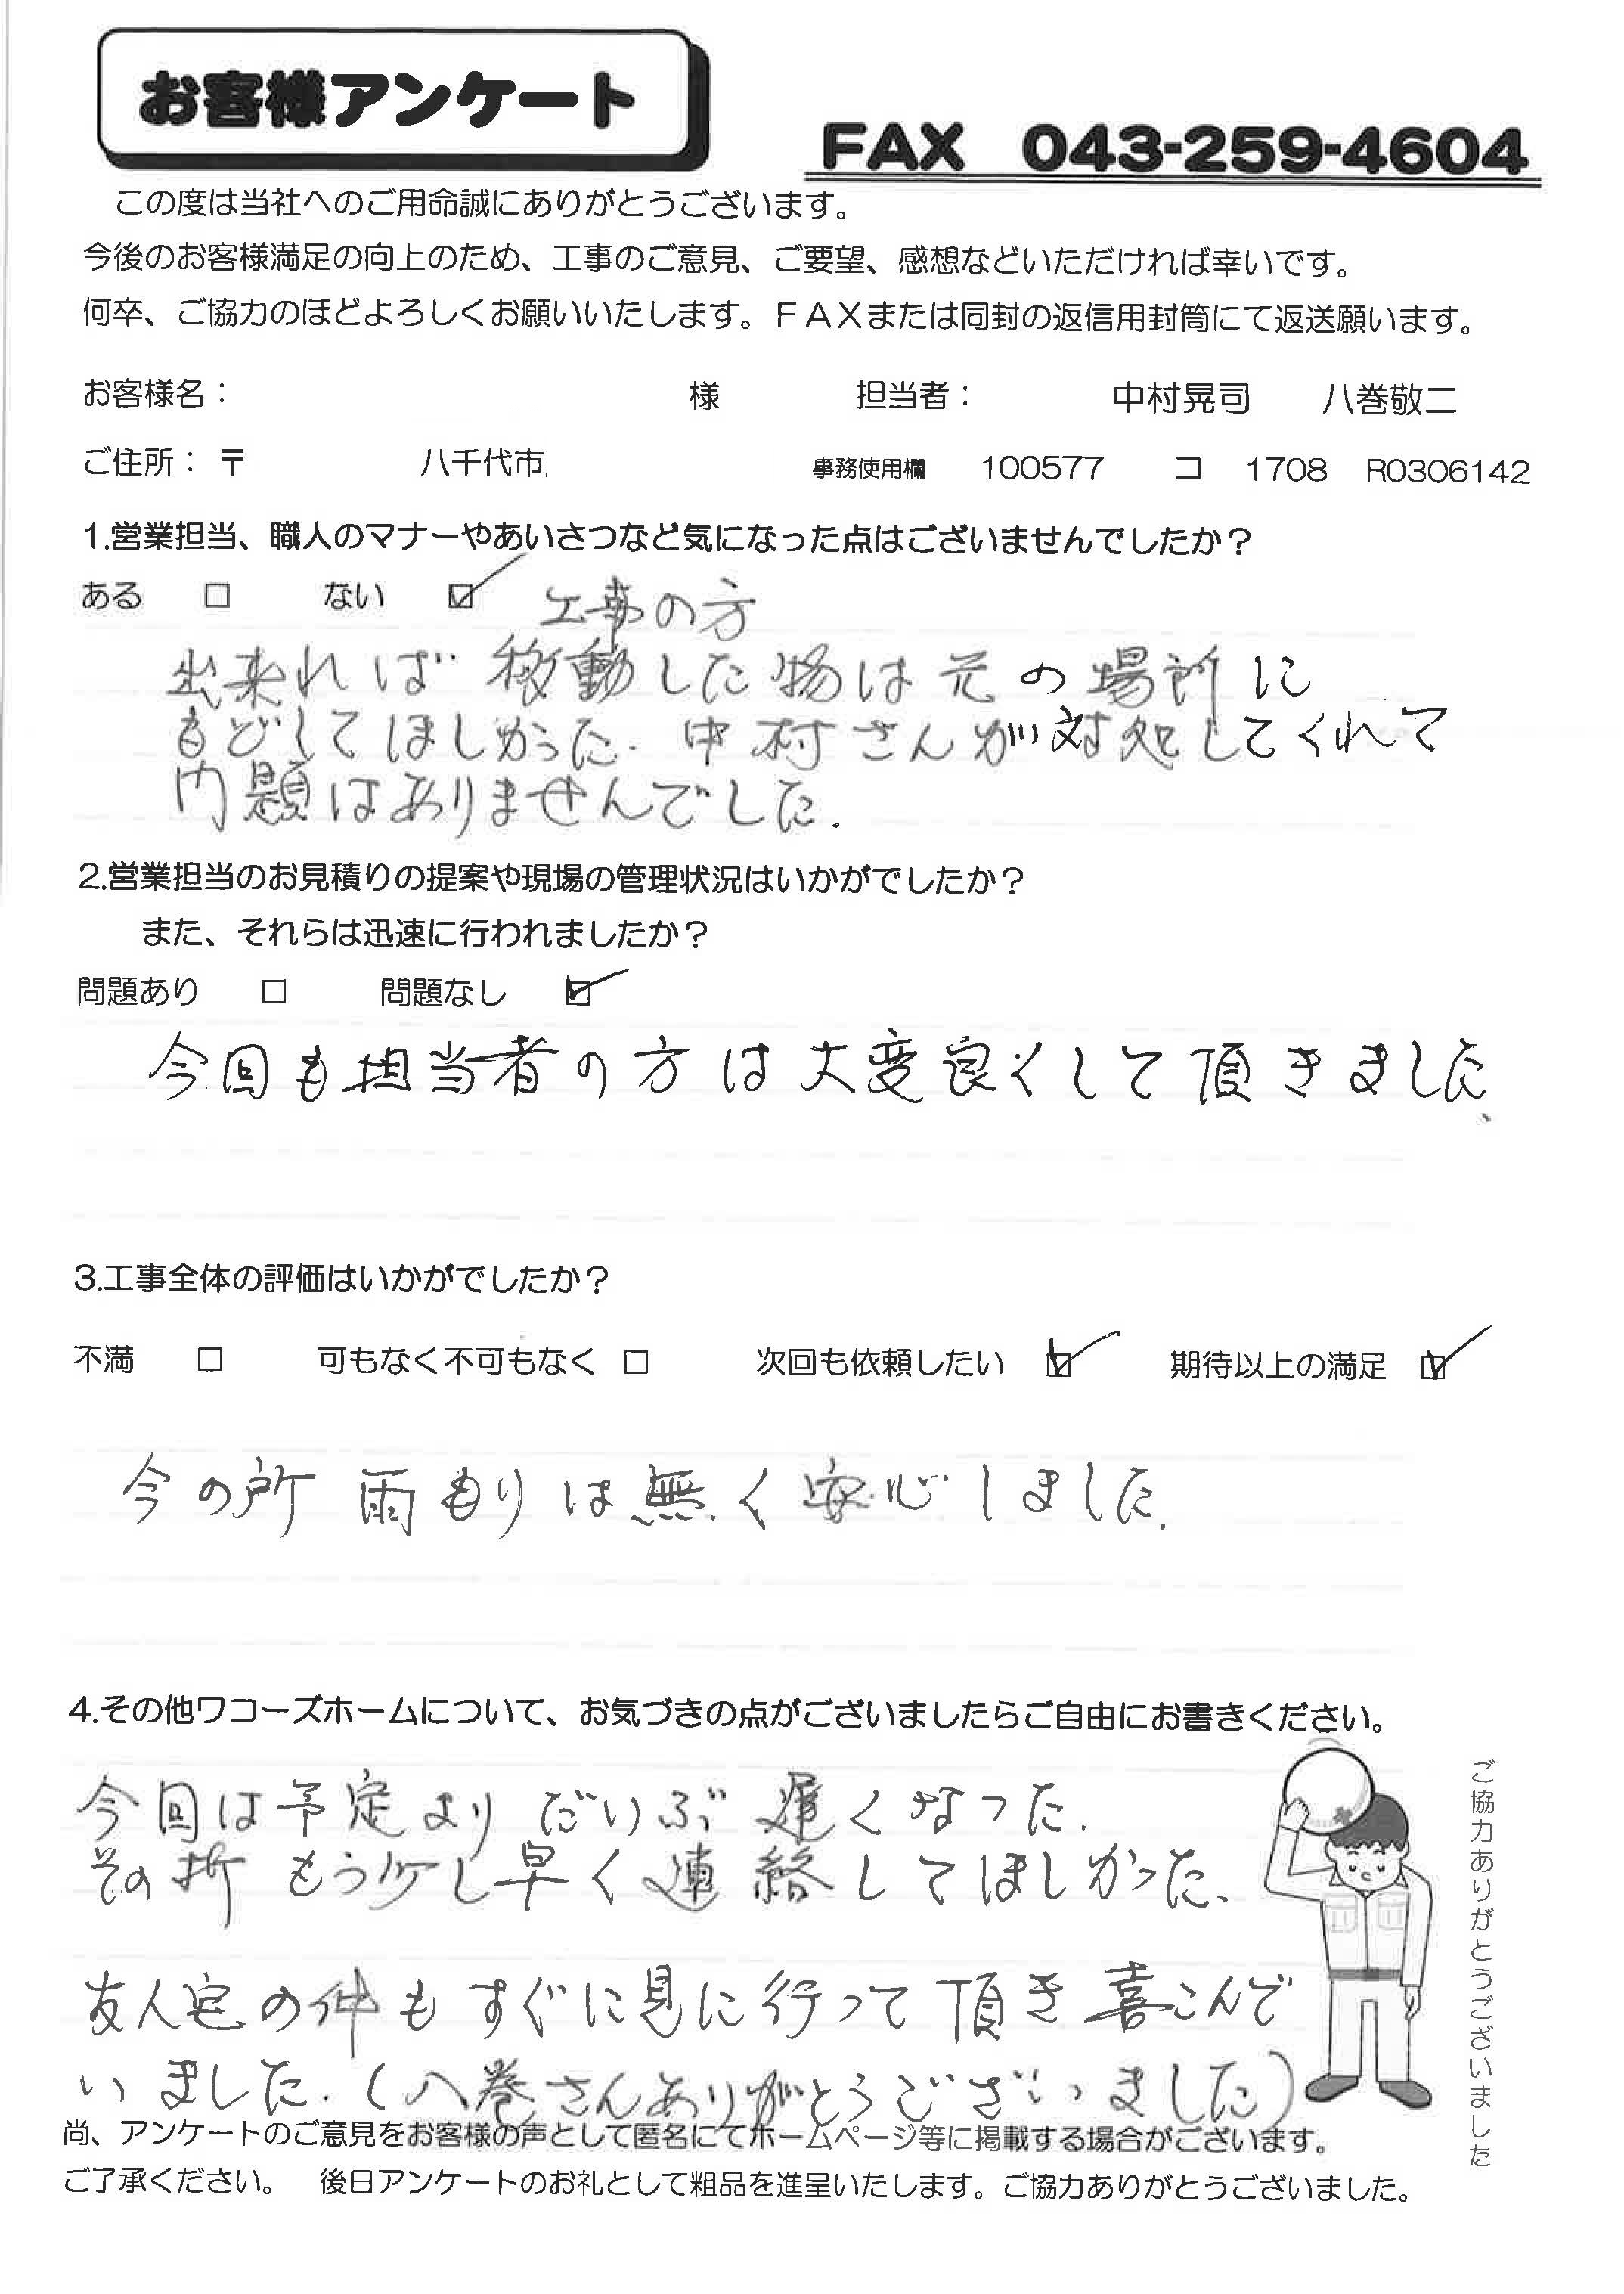 お客様アンケート
FAX 043-259-4604
この度は当社へのご用命誠にありがとうございます。
今後のお客様満足の向上のため、工事のご意見、ご要望、感想などいただければ幸いです。
何卒、ご協力のほどよろしくお願いいたします。FAXまたは同封の返信用封筒にて返送願います。
お客様名： 様 担当者： 中村晃司 八巻敬二
ご住所： 〒 八千代市 事務使用欄 100577 コ 1708 R0306142
1.営業担当、職人のマナーやあいさつなど気になった点はございませんでしたか？
ある □ ない ☑ 工事の方
出来れば 移動した物は元の場所に
もどしてほしかった. 中村さんが対処してくれて
問題はありませんでした.
2.営業担当のお見積りの提案や現場の管理状況はいかがでしたか？
また、それらは迅速に行われましたか？
問題あり □ 問題なし ☑
今回も担当者の方は大変良くして頂きました、
3.工事全体の評価はいかがでしたか？
不満 □ 可もなく不可もなく □ 次回も依頼したい ☑ 期待以上の満足 ☑
今の所 雨もりは無く安心しました.
4.その他ワコーズホームについて、お気づきの点がございましたらご自由にお書きください。
今回は予定より だいぶ 遅くなった.
その折 もう少し早く連絡してほしかった、
友人宅の件もすぐに見に行って頂き喜こんで
いました.(八巻さんありがとうございました)
ご協力ありがとうございました
尚、アンケートのご意見をお客様の声として匿名にてホームページ等に掲載する場合がございます。
ご了承ください。 後日アンケートのお礼として粗品を進呈いたします。ご協力ありがとうございました。